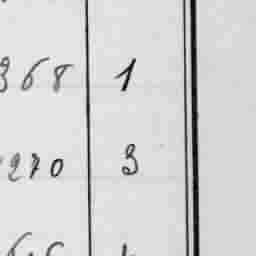 368 1
270 3